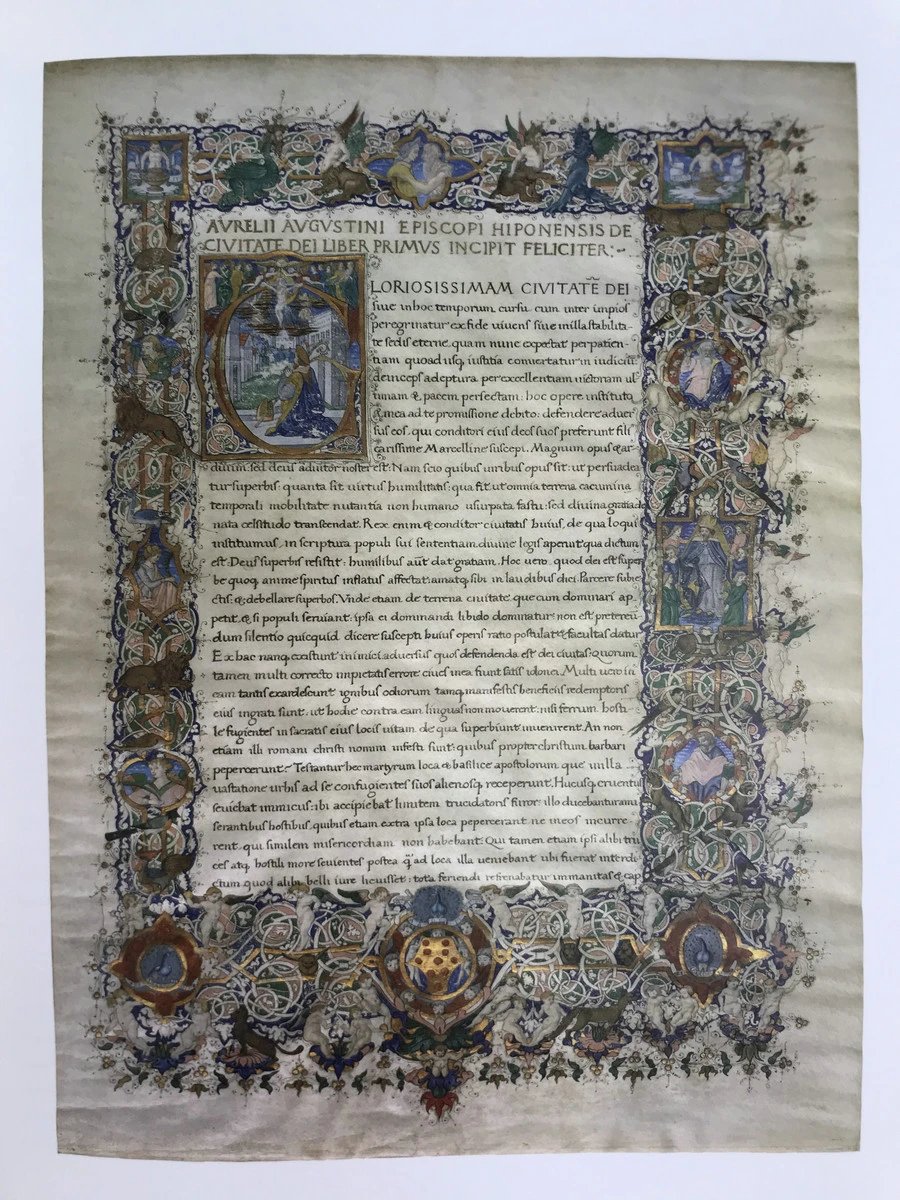 AVRELII AVGVSTINI EPISCOPI HIPONENSIS DE
CIVITATE DEI LIBER PRIMVS INCIPIT FELICITER:~
GLORIOSISSIMAM CIVITATĒ DEI
siue in hoc temporum cursu cum inter impios
peregrinatur ex fide uiuens siue in illa stabilita-
te sedis eterne. quam nunc expectat per patien-
tiam quoad usq; iustitia conuertatur in iudiciū
deinceps adeptura per excellentiam uictoriam ul
timam & pacem perfectam: hoc opere instituto
& mea ad te promissione debito: defendere aduer
sus eos. qui conditori eius deos suos preferunt fili
carissime Marcelline suscepi. Magnum opus & ar-
duum. sed deus adiutor noster est. Nam scio quibus uiribus opus sit: ut persuadea
tur superbis: quanta sit uirtus humilitatis: qua fit ut omnia terrena cacumina
temporali mobilitate nutantia non humano usurpata fastu: sed diuina gratia do
nata celsitudo transcendat. Rex enim & conditor ciuitatis huius, de qua loqui
instituimus, in scriptura populi sui sententiam diuine legis aperuit qua dictum
est. Deus superbis resistit: humilibus aūt dat gratiam. Hoc uero. quod dei est super
be quoq; anime spiritus inflatus affectat: amatq; sibi in laudibus dici. Parcere subie
ctis: & debellare superbos. Vnde etiam de terrena ciuitate, que cum dominari ap-
petit. & si populi seruiant: ipsa ei dominandi libido dominatur: non est pretereū
dum silentio quicquid dicere suscepti huius operis ratio postulat & facultas datur
Ex hac nanq; existunt inimici aduersus quos defendenda est dei ciuitas: Quorum
tamen multi correcto impietatis errore ciues in ea fiunt satis idonei. Multi uero in
eam tantis exardescunt ignibus odiorum tamq; manifestis beneficiis redemptoris
eius ingrati sunt. ut hodie contra eam linguas non mouerent. nisi ferrum hosti-
le fugientes in sacratis eius locis uitam de qua superbiunt inuenirent. An non
etiam illi romani christi nomini infesti sunt: quibus propter christum barbari
pepercerunt? Testantur hec martyrum loca & basilice apostolorum que in illa
uastatione urbis ad se confugientes suos alienosq; receperunt. Hucusq; cruentus
seuiebat inimicus: ibi accipiebat limitem trucidatoris furor: illo ducebantur a mi
serantibus hostibus, quibus etiam extra ipsa loca pepercerant ne in eos incurre-
rent. qui similem misericordiam non habebant. Qui tamen etiam ipsi alibi tru
ces atq; hostili more seuientes postea q̄ ad loca illa ueniebant ubi fuerat interdi-
ctum quod alibi belli iure licuisset: tota feriendi refrenabatur immanitas & cap